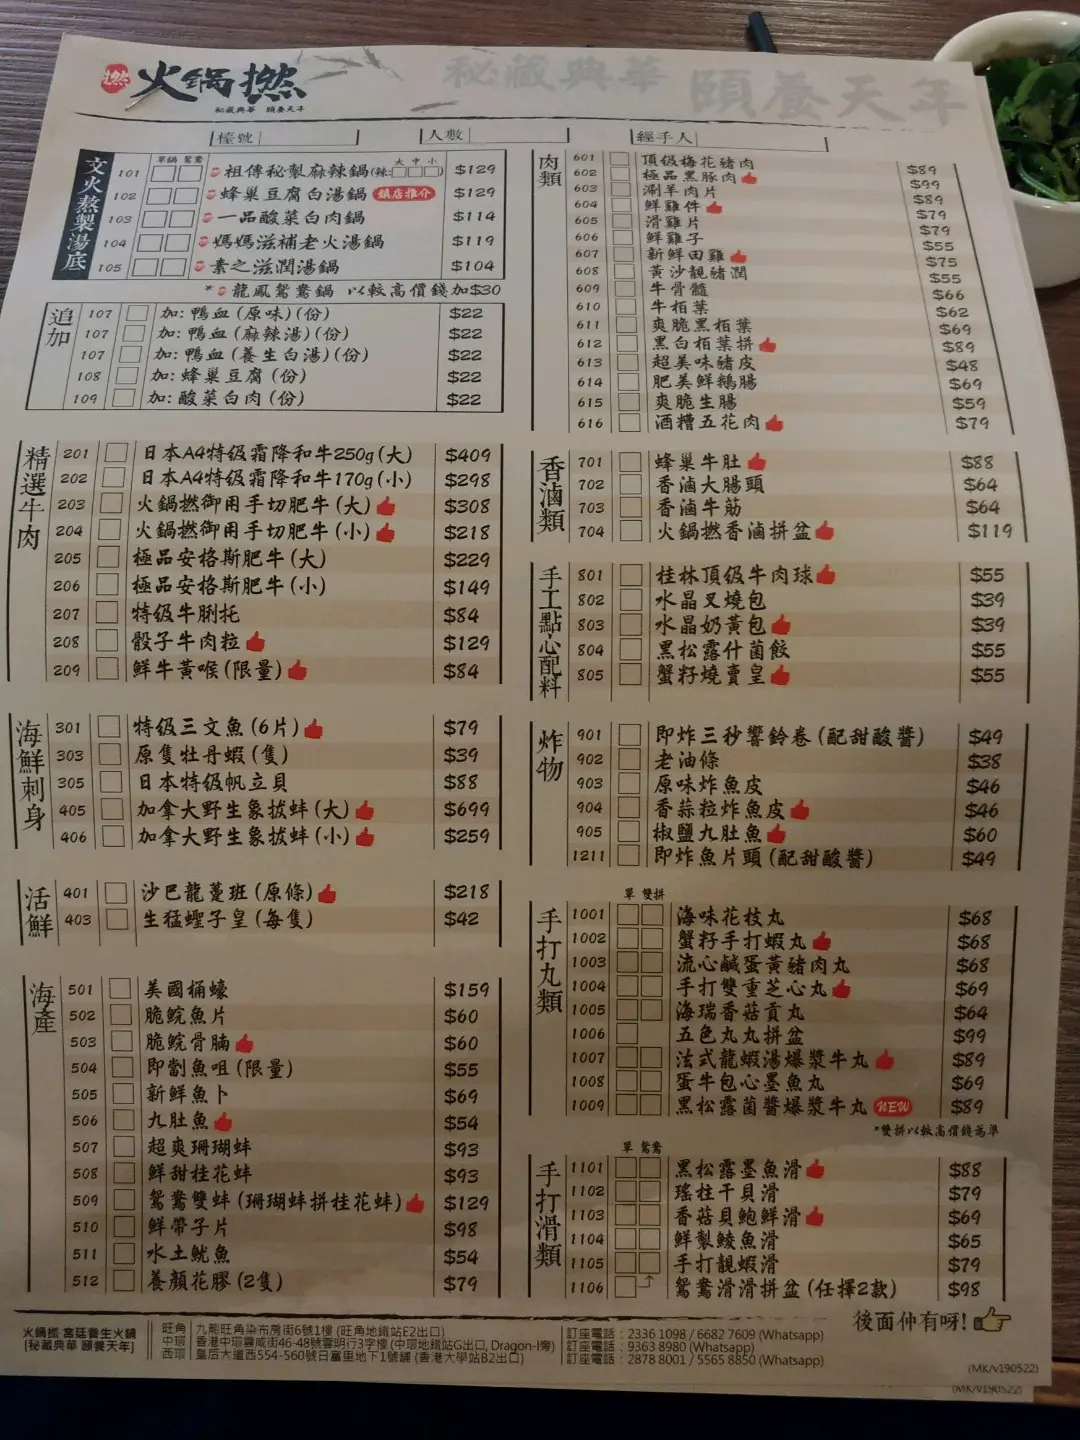 撚 火鍋撚
秘藏典華 頤養天年
秘藏典華 頤養天年
檯號
人數
經手人
文火熬製湯底
單鍋 鴛鴦
大 中 小
101 祖傳秘製麻辣鍋(辣: $129
102 蜂巢豆腐白湯鍋 鎮店推介 $129
103 一品酸菜白肉鍋 $114
104 媽媽滋補老火湯鍋 $119
105 素之滋潤湯鍋 $104
* 龍鳳鴛鴦鍋 以較高價錢加$30
追加
107 加: 鴨血 (原味)(份) $22
107 加: 鴨血 (麻辣湯)(份) $22
107 加: 鴨血 (養生白湯)(份) $22
108 加: 蜂巢豆腐 (份) $22
109 加: 酸菜白肉 (份) $22
精選牛肉
201 日本A4特级霜降和牛250g(大) $409
202 日本A4特级霜降和牛170g(小) $298
203 火鍋撚御用手切肥牛(大) $308
204 火鍋撚御用手切肥牛(小) $218
205 極品安格斯肥牛(大) $229
206 極品安格斯肥牛(小) $149
207 特级牛脷托 $84
208 骰子牛肉粒 $129
209 鮮牛黃喉(限量) $84
海鮮刺身
301 特级三文魚(6片) $79
303 原隻牡丹蝦(隻) $39
305 日本特级帆立貝 $88
405 加拿大野生象拔蚌(大) $699
406 加拿大野生象拔蚌(小) $259
活鮮
401 沙巴龍躉班(原條) $218
403 生猛蟶子皇(每隻) $42
海產
501 美國桶蠔 $159
502 脆鯇魚片 $60
503 脆鯇骨腩 $60
504 即劏魚咀(限量) $55
505 新鮮魚卜 $69
506 九肚魚 $54
507 超爽珊瑚蚌 $93
508 鮮甜桂花蚌 $93
509 鴛鴦雙蚌(珊瑚蚌拼桂花蚌) $129
510 鮮帶子片 $98
511 水土魷魚 $54
512 養顏花膠(2隻) $79
肉類
601 頂级梅花豬肉 $89
602 極品黑豚肉 $99
603 涮羊肉片 $89
604 鮮雞件 $79
605 滑雞片 $79
606 鮮雞子 $55
607 新鮮田雞 $75
608 黃沙靚豬潤 $55
609 牛骨髓 $66
610 牛栢葉 $62
611 爽脆黑栢葉 $69
612 黑白栢葉拼 $89
613 超美味豬皮 $48
614 肥美鮮鵝腸 $69
615 爽脆生腸 $59
616 酒糟五花肉 $79
香滷類
701 蜂巢牛肚 $88
702 香滷大腸頭 $64
703 香滷牛筋 $64
704 火鍋撚香滷拼盆 $119
手工點心配料
801 桂林頂级牛肉球 $55
802 水晶叉燒包 $39
803 水晶奶黃包 $39
804 黑松露什菌餃 $55
805 蟹籽燒賣皇 $55
炸物
901 即炸三秒響鈴卷(配甜酸醬) $49
902 老油條 $38
903 原味炸魚皮 $46
904 香蒜粒炸魚皮 $46
905 椒鹽九肚魚 $60
1211 即炸魚片頭(配甜酸醬) $49
手打丸類
單 雙拼
1001 海味花枝丸 $68
1002 蟹籽手打蝦丸 $68
1003 流心鹹蛋黃豬肉丸 $68
1004 手打雙重芝心丸 $69
1005 海瑞香菇貢丸 $64
1006 五色丸丸拼盆 $99
1007 法式龍蝦湯爆漿牛丸 $89
1008 蛋牛包心墨魚丸 $69
1009 黑松露菌醬爆漿牛丸 NEW $89
*雙拼以較高價錢為準
手打滑類
單 鴛鴦
1101 黑松露墨魚滑 $88
1102 瑤柱干貝滑 $79
1103 香菇貝鮑鮮滑 $69
1104 鮮製鯪魚滑 $65
1105 手打靚蝦滑 $79
1106 鴛鴦滑滑拼盆(任擇2款) $98
後面仲有呀!
火鍋撚 宮廷養生火鍋
[秘藏典華 頤養天年]
旺角 九龍旺角染布房街6號1樓 (旺角地鐵站E2出口) 訂座電話 : 2336 1098 / 6682 7609 (Whatsapp)
中環 香港中環雲咸街46-48號雲明行3字樓 (中環地鐵站G出口, Dragon-I旁) 訂座電話 : 9363 8980 (Whatsapp)
西環 皇后大道西554-560號日富里地下1號舖 (香港大學站B2出口) 訂座電話 : 2878 8001 / 5565 8850 (Whatsapp)
(MK/v190522)
(MK/v190522)